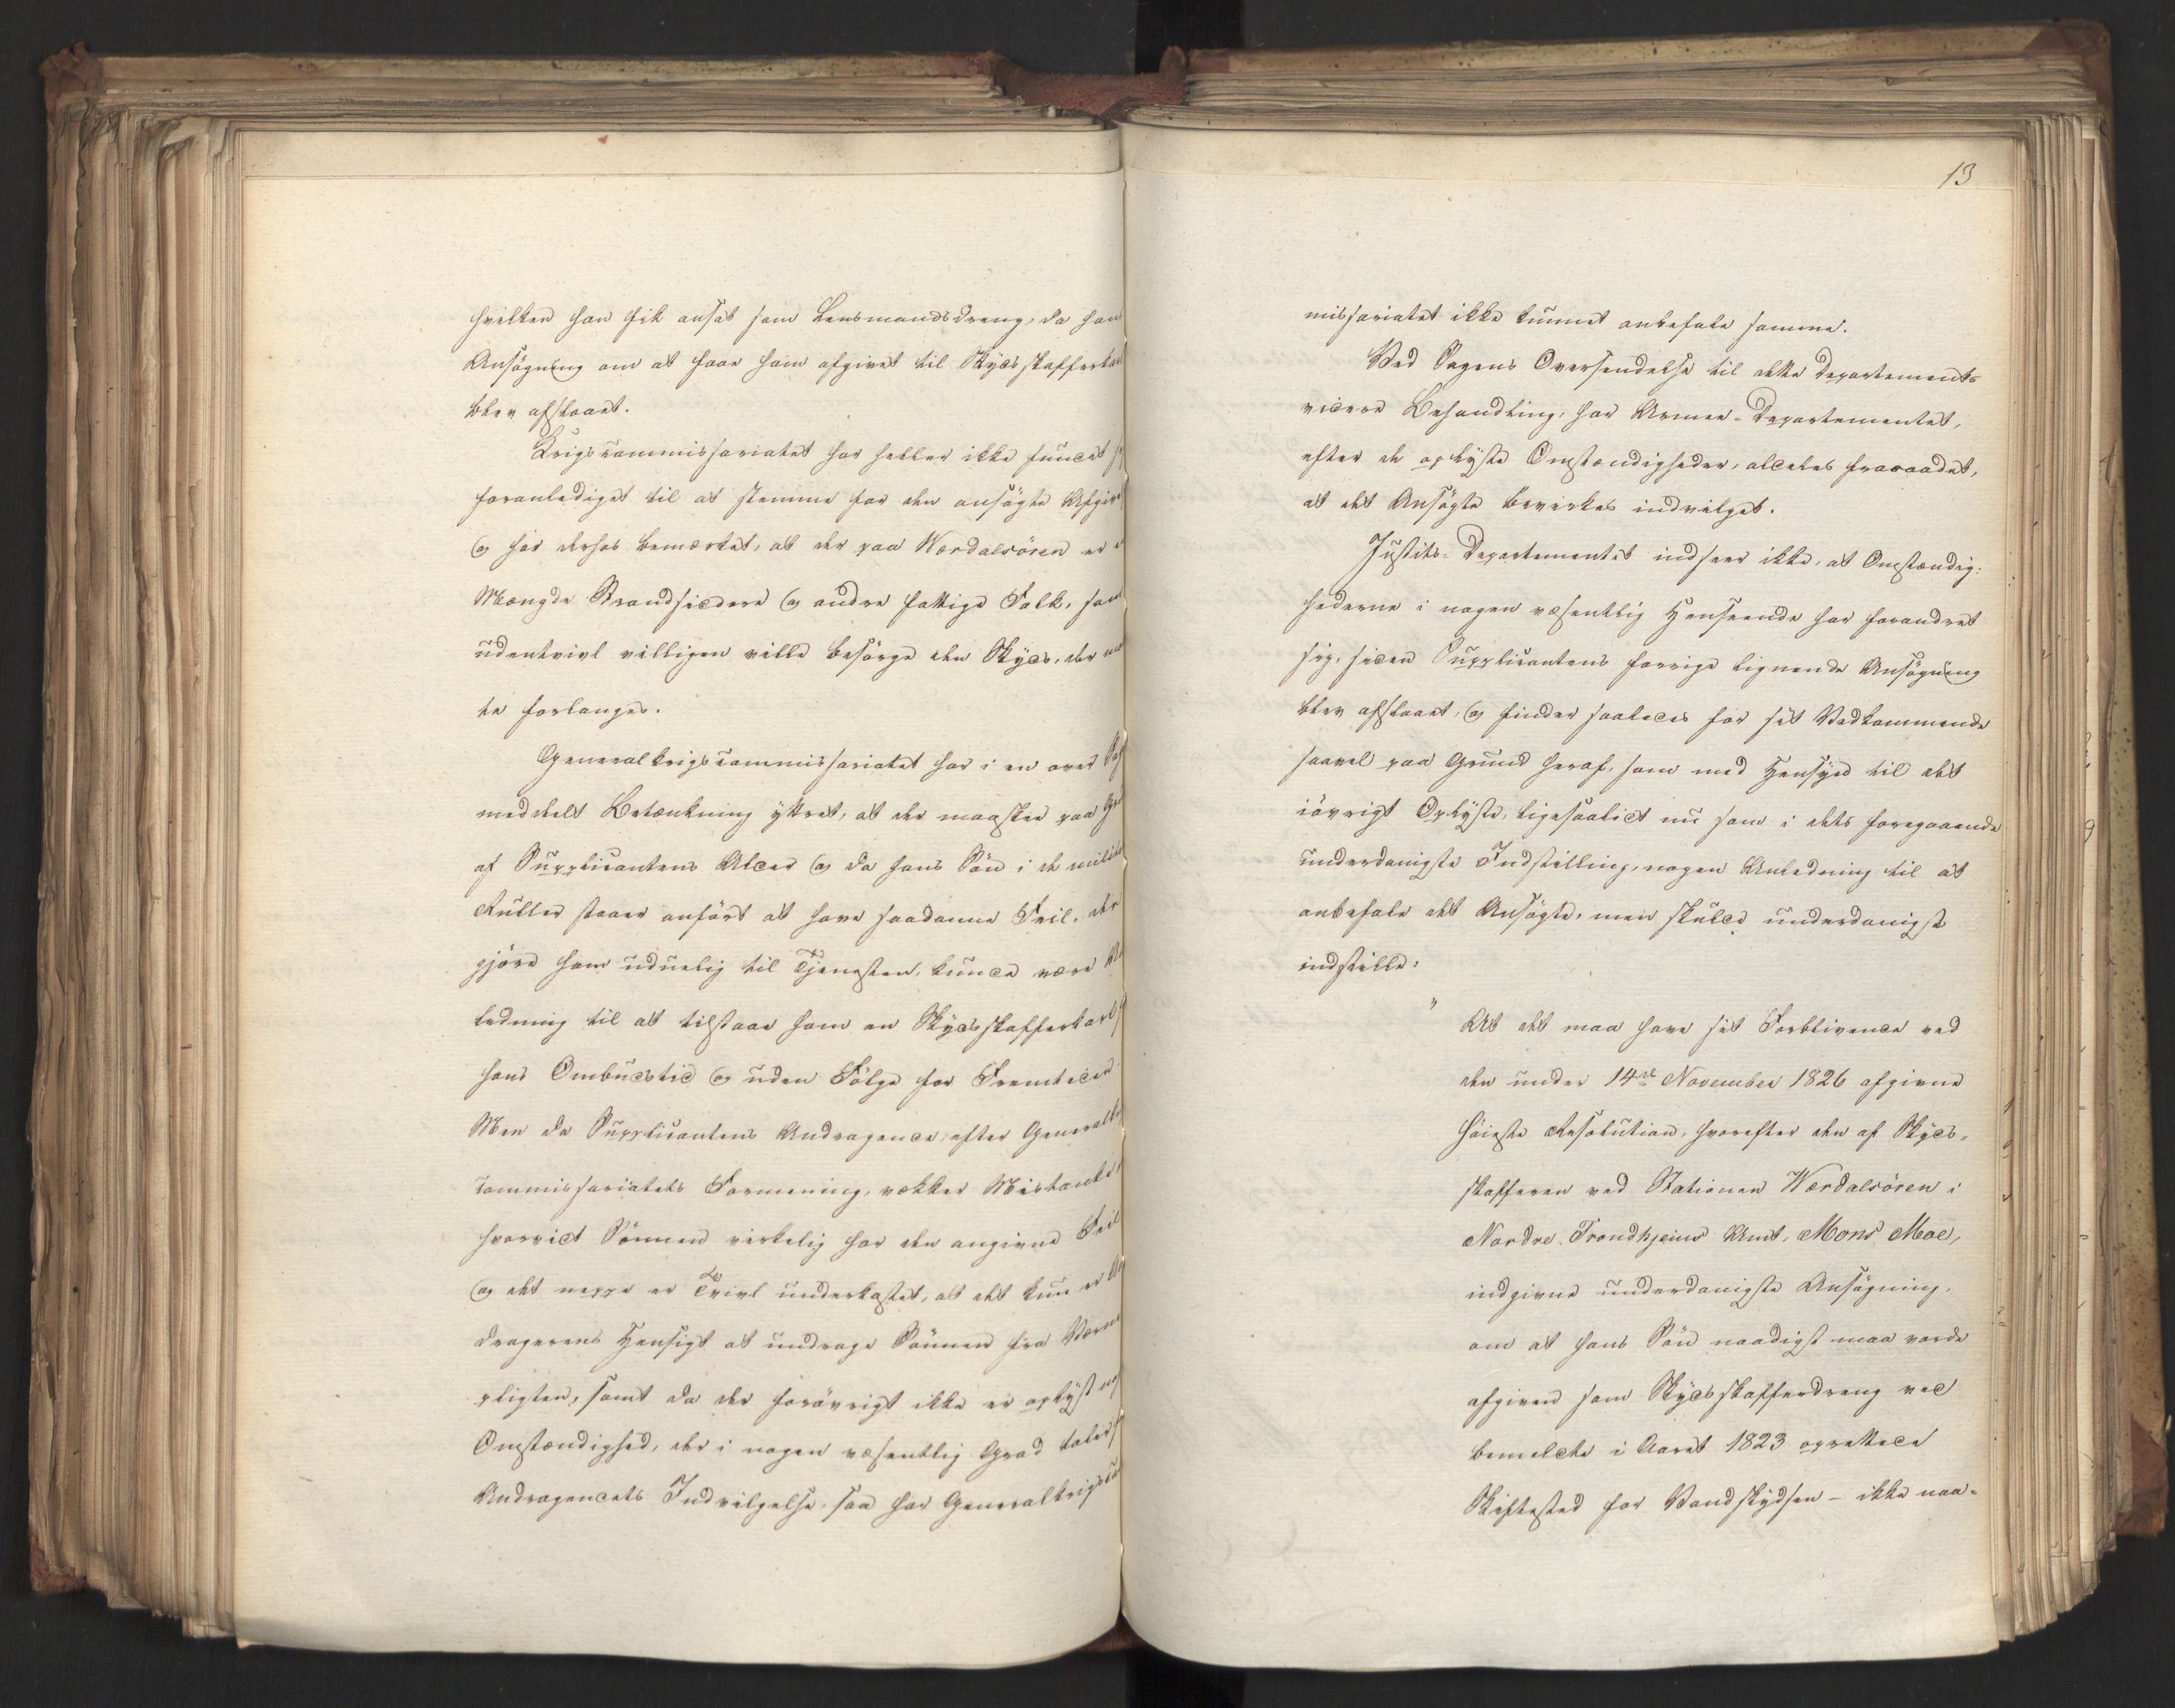 hvilken han fik ansat som Lensmandsdreng, da hans
Ansøgning om at faae ham afgivet til Skydsskafferkarl
blev afslaaet.
Krigscommissariatet har heller ikke fundet
foranlediget til at stemme for den ansøgte Afgiv
og har derhos bemærket, at der paa Værdalsören er
Mængde Strandsiddere og andre fattige Folk, som
udentvivl villigen ville besørge den Skyds, der
te forlanges.
Generalkrigscommissariatet har i en over
meddelt Betænkning yttret, at der maaskee paa
af Supplicantens Alder og da hans Søn i de
Ruller staaer anført at have saadanne Feil, der
gjøre ham uduelig til Tjenesten, kunde være
ledning til at tilstaae ham en Skydsskafferkarl
hans Ombudstid og uden Følge for Fremtiden.
Men da Supplicantens Andragende, efter Generalk
commissariatets Formening, vækker Mistanke,
hvorvidt Sønnen virkelig har den angivne Feil
og det neppe er Tvivl underkastet, at det kun er
dragerens Hensigt at unddrage Sønnen fra Værne
pligten, samt da der forøvrigt ikke er oplyst
Omstændighed, der i nogen væsentlig Grad taler
Andragendets Indvilgelse, saa har Generalkrigs
13
missariatet ikke kunnet anbefale samme.
Ved Sagens Oversendelse til dette Departements
videre Behandling, har Armee-Departementet,
efter de oplyste Omstændigheder, aldeles fraraadet,
at det Ansøgte bevirkes indvilget.
Justits-Departementet indseer ikke, at Omstændig-
hederne i nogen væsentlig Henseende har forandret
sig, siden Supplicantens forrige lignende Ansøgning
blev afslaaet, og finder saaledes for sit Vedkommende
saavel paa Grund heraf, som med Hensyn til det
iøvrigt Oplyste, ligesaalidt nu som i dets foregaaende
underdanigste Indstilling, nogen Anledning til at
anbefale det Ansøgte, men skulde underdanigst
indstille:
" At det maa have sit Forblivende ved
den under 14de November 1826 afgivne
høieste Resolution, hvorefter den af Skyds-
skafferen ved Stationen Værdalsören i
Nordre Trondhjems Amt, Mons Moe,
indgivne underdanigste Ansøgning,
om at hans Søn naadigst maa vorde
afgiven som Skydsskafferdreng ved
bemeldte i Aaret 1823 oprettede
Skiftested for Vandskydsen – ikke naa-